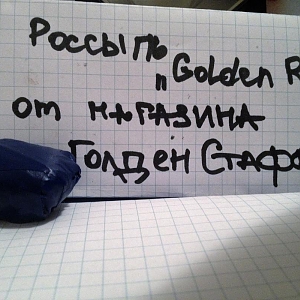 Россыпь
"Golden R
от магазина
Голден Стафф